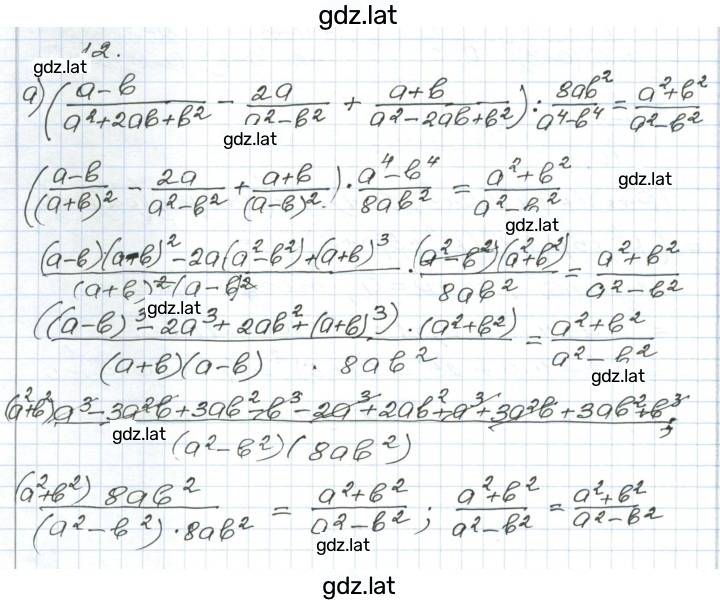 gdz.lat
12.
gdz.lat
а) ((a-b)/(a²+2ab+b²) - 2a/(a²-b²) + (a+b)/(a²-2ab+b²)) : 8ab²/(a⁴-b⁴) = (a²+b²)/(a²-b²)
gdz.lat
((a-b)/(a+b)² - 2a/(a²-b²) + (a+b)/(a-b)²) · (a⁴-b⁴)/(8ab²) = (a²+b²)/(a²-b²)
gdz.lat
gdz.lat
((a-b)(a-b)² - 2a(a²-b²) + (a+b)³)/((a+b)²(a-b)²) · ((a²-b²)(a²+b²))/(8ab²) = (a²+b²)/(a²-b²)
gdz.lat
(((a-b)³ - 2a³ + 2ab² + (a+b)³) · (a²+b²))/((a+b)(a-b) · 8ab²) = (a²+b²)/(a²-b²)
gdz.lat
(a²+b²)(a³ - 3a²b + 3ab² - b³ - 2a³ + 2ab² + a³ + 3a²b + 3ab² + b³)/((a²-b²)(8ab²));
gdz.lat
((a²+b²) 8ab²)/((a²-b²) · 8ab²) = (a²+b²)/(a²-b²); (a²+b²)/(a²-b²) = (a²+b²)/(a²-b²)
gdz.lat
gdz.lat